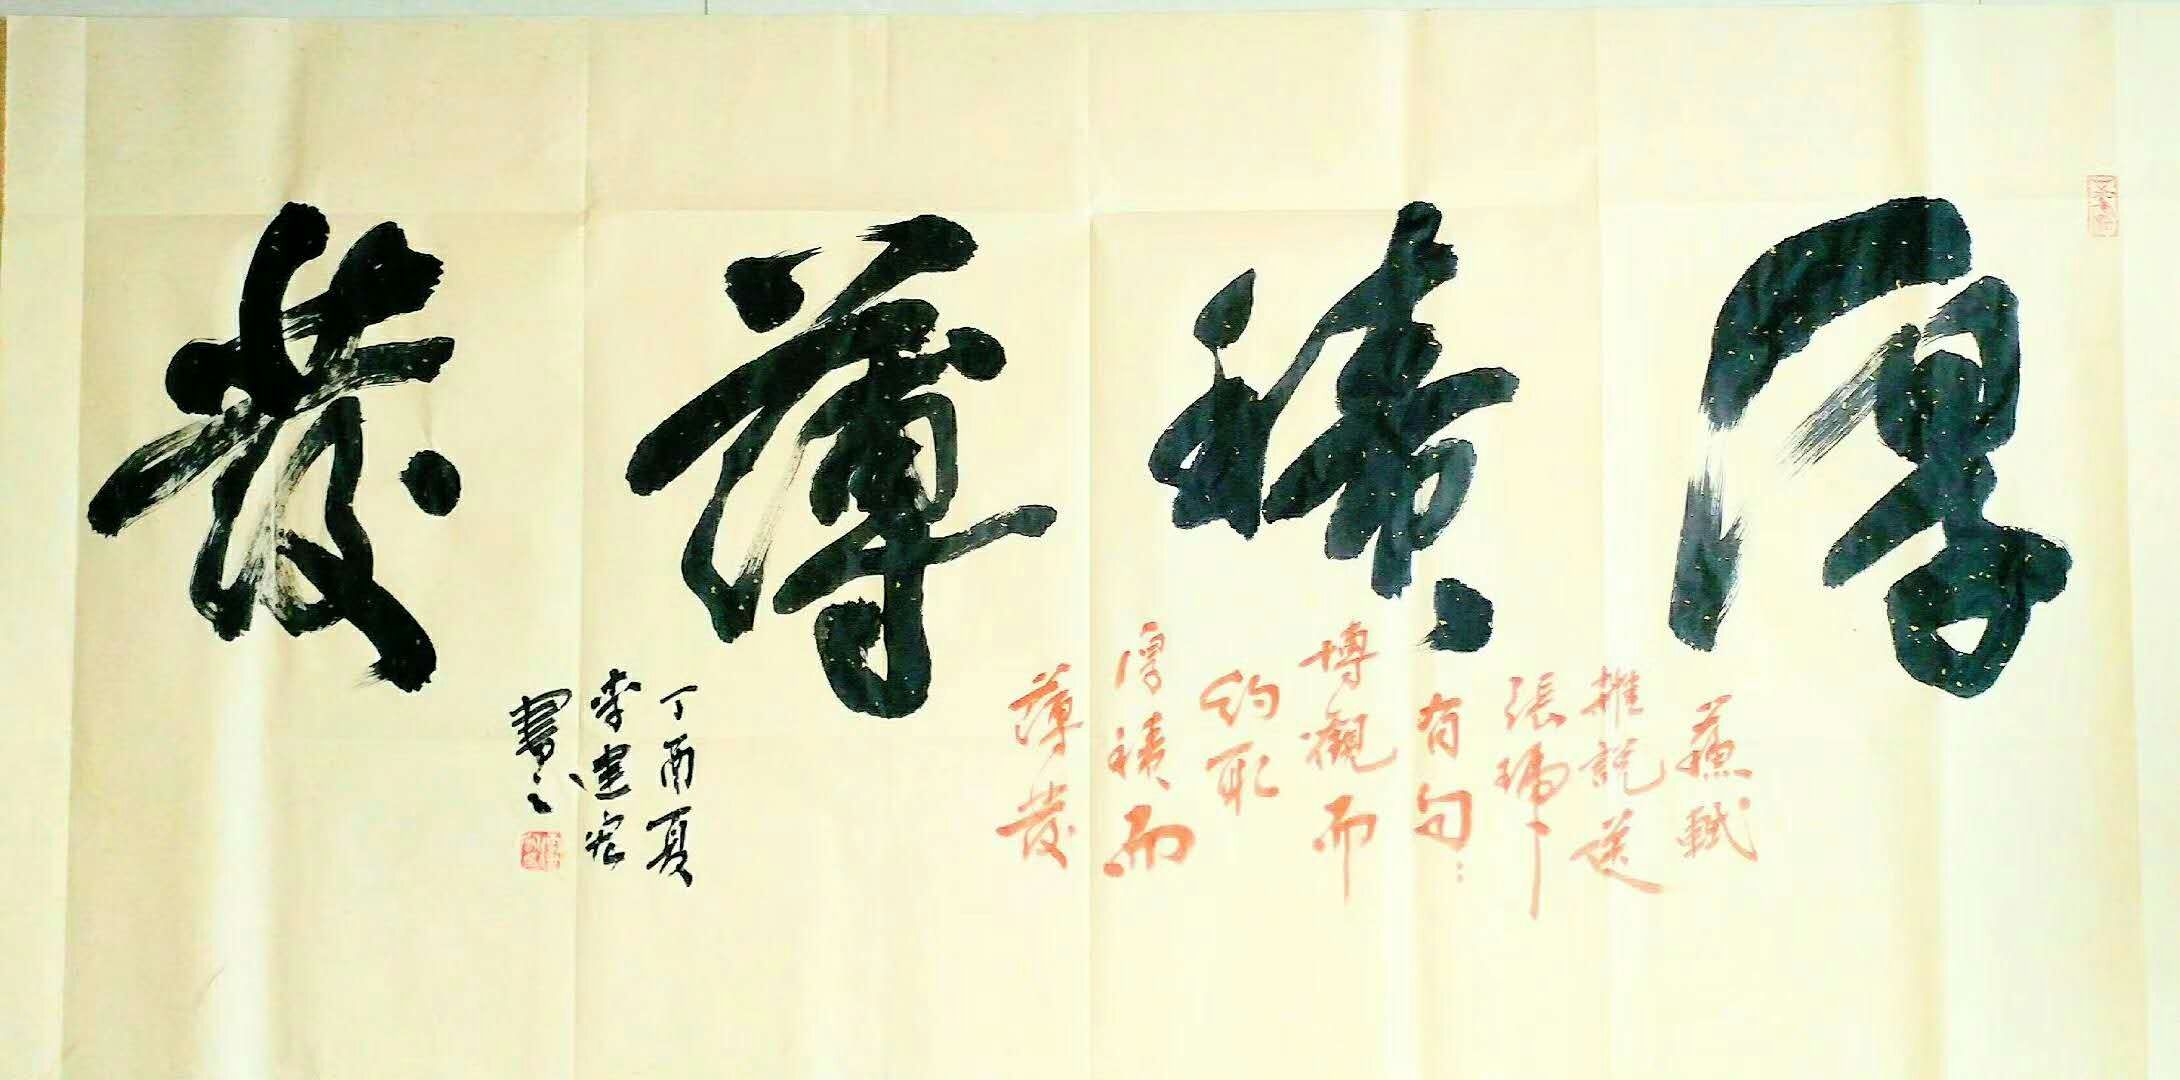 厚積薄發
蘇軾
雜說送
張琥
有句：
博觀而
約取
厚積而
薄發
丁酉夏
李建宏
書之